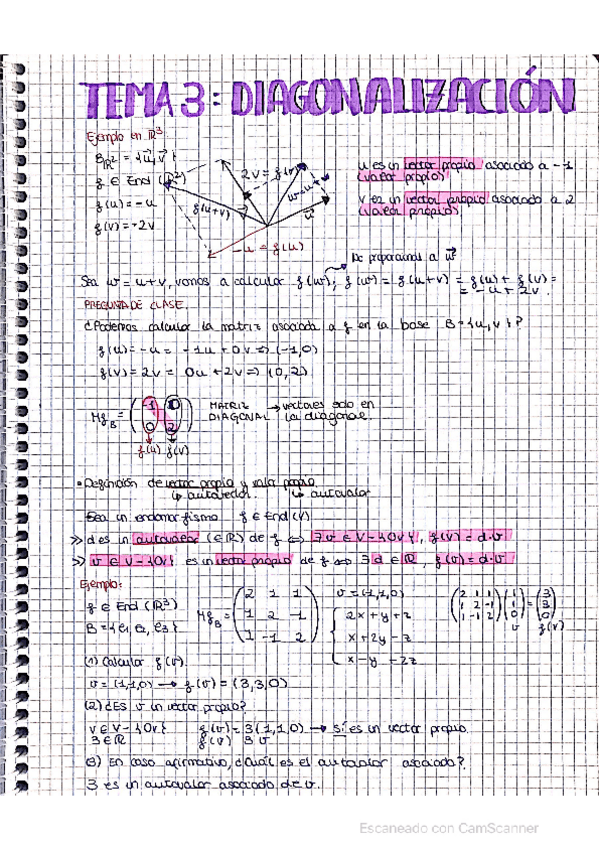 TEMA 3: DIAGONALIZACIÓN
Ejemplo en R³
B_R² = {u⃗, v⃗}
f ∈ End (R²)
f(u) = -u
f(v) = -2v
2v = f(v)
f(u+v)
w = u+v
u⃗
-u = f(u)
u es un vector propio asociado a -1
(valor propio)
v es un vector propio asociado a 2
(valor propio)
No proporcional a w⃗
Sea w = u+v, vamos a calcular f(w); f(w) = f(u+v) = f(u) + f(v) =
= -u + 2v
PREGUNTA DE CLASE.
¿Podemos calcular la matriz asociada a f en la base B = {u, v}?
f(u) = -u = -1u + 0v ⇒ (-1,0)
f(v) = 2v = 0u + 2v ⇒ (0,2)
Mf_B = (-1 0
0 2)
f(u) f(v)
MATRIZ DIAGONAL → vectores solo en la diagonal.
• Definición de vector propio y valor propio
↳ autovector. ↳ autovalor
Sea un endomorfismo f ∈ End(V)
» d es un autovalor (∈ R) de f ⇔ ∃ v ∈ V-{0v}, f(v) = d·v
» v ∈ V-{0v} es un vector propio de f ⇔ ∃ d ∈ R, f(v) = d·v
Ejemplo:
f ∈ End (R³)
B = {e₁, e₂, e₃}
Mf_B = (2 1 1
1 2 -1
1 -1 2)
v = (1,1,0)
{ 2x + y + z
x + 2y - z
x - y - 2z
(2 1 1
1 2 -1
1 -1 2) (1 1 0) = (3 3 0)
v f(v)
(1) Calcular f(v).
v = (1,1,0) → f(v) = (3,3,0)
(2) ¿Es v un vector propio?
v ∈ V-{0v} f(v) = 3(1,1,0) → sí es un vector propio.
3 ∈ R f(v) 3 v
(3) En caso afirmativo, ¿Cuál es el autovalor asociado?
3 es un autovalor asociado de v.
Escaneado con CamScanner